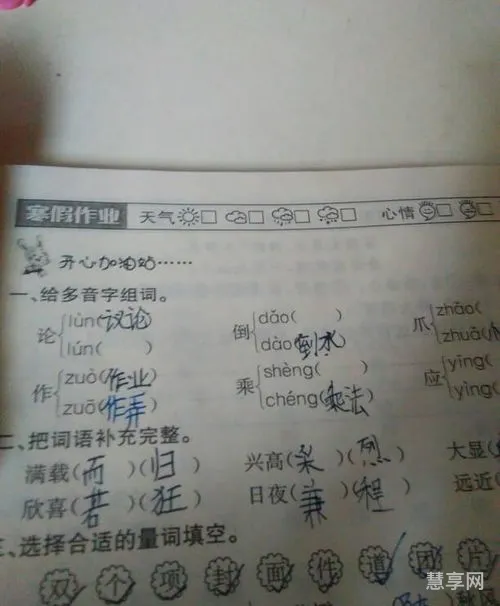 寒假作业 天气 □ □ □ □ 心情 □ □
开心加油站……
一、给多音字组词。
论 lùn(议论) lún( ) 倒 dǎo( ) dào(倒水) 爪 zhǎo( zhuǎ(
作 zuò(作业) zuō(作弄) 乘 shèng( ) chéng(乘法) 应 yīng( yìng(
二、把词语补充完整。
满载(而)(归) 兴高(采)(烈) 大显(
欣喜(若)(狂) 日夜(兼)(程) 远近(
三、选择合适的量词填空。
双 个 项 封 面 件 道 团 片
慧享网